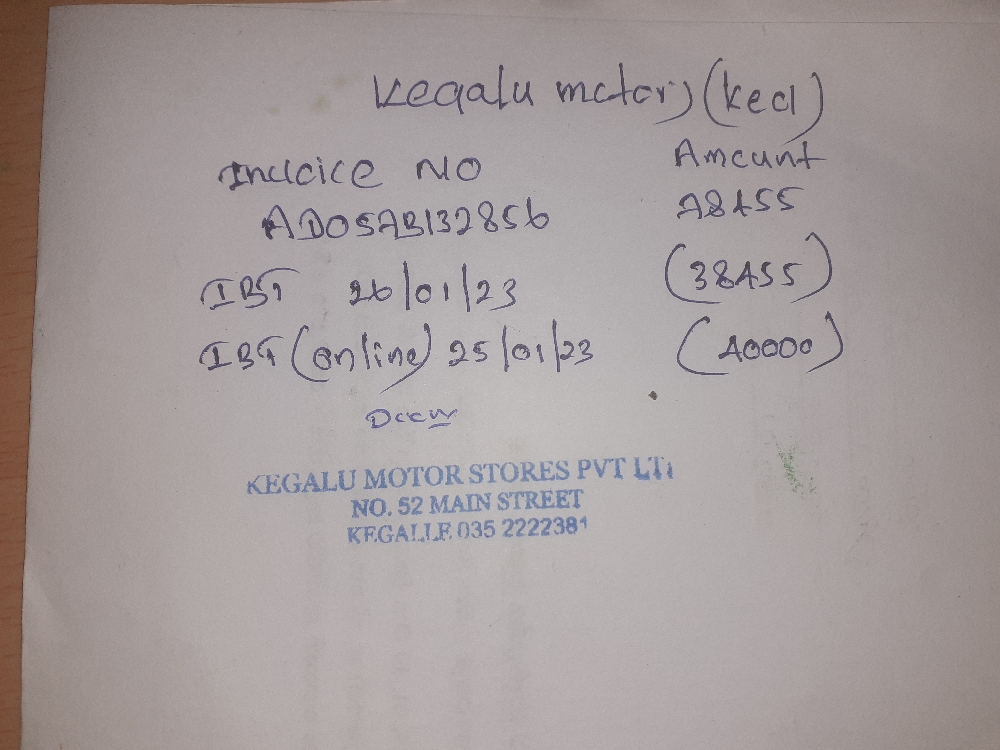 Kegalu motors
Invoice NO Amount
AD05AB132856 78455
IBT 26/01/23 (38455)
IBT (online) 25/01/23 (40000)
KEGALU MOTOR STORES PVT LTD
NO. 52 MAIN STREET
KEGALLE 035 2222381